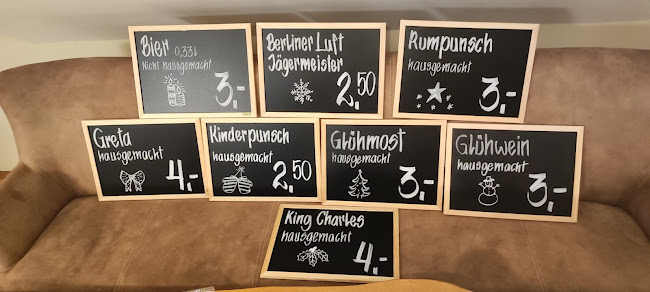 Bier 0,33l
Nicht hausgemacht
3,-
Berliner Luft
Jägermeister
2,50
Rumpunsch
hausgemacht
3,-
Greta
hausgemacht
4,-
Kinderpunsch
hausgemacht
2,50
Glühmost
hausgemacht
3,-
Glühwein
hausgemacht
3,-
King Charles
hausgemacht
4,-